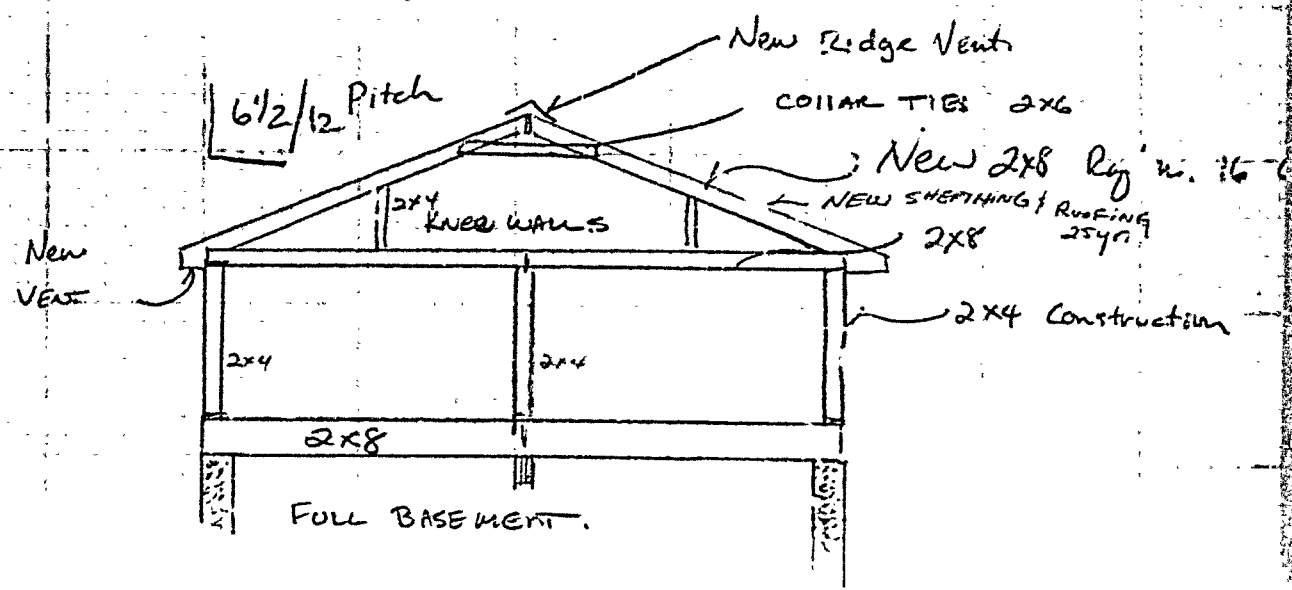 New Ridge Vent
6 1/2/12 Pitch
COLLAR TIES 2x6
New 2x8
NEW SHEATHING & ROOFING
25yr
2x4
KNEE WALLS
2x8
New
VENT
2x4 Construction
2x4
2x4
2x8
FULL BASEMENT.